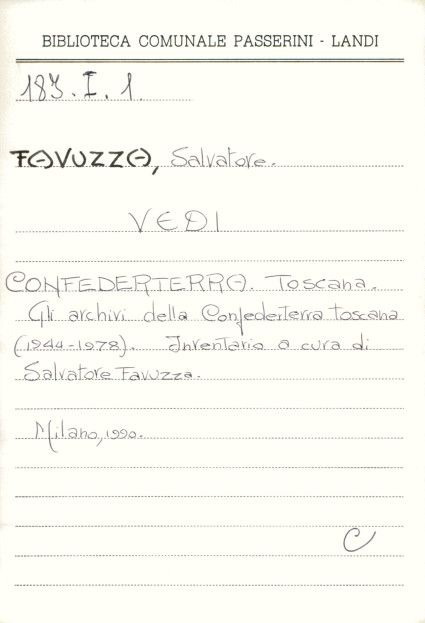 BIBLIOTECA COMUNALE PASSERINI - LANDI
183. I. 1.
FAVUZZA, Salvatore.
VEDI
CONFEDERTERRA. Toscana.
Gli archivi della Confederterra toscana
(1944-1978). Inventario a cura di
Salvatore Favuzza.
Milano, 1990.
C